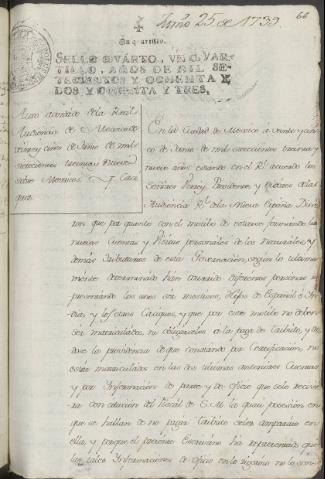 Junio 25 de 1739.
66
Un quartillo.
SELLO QVARTO, VN QVAR-
TILLO, AÑOS DE MIL SE-
TECIENTOS Y OCHENTA Y
DOS Y OCHENTA Y TRES.
Auto acordado de la Real
Audiencia de Mexico de
veinte y cinco de Junio de mil
setecientos treinta y nueve
sobre Mestizos, y Caci
ques.
En la Ciudad de Mexico a veinte y cin
co de Junio de mil setecientos treinta y
nueve años estando en el Rl. acuerdo los
Señores Virrey, Presidente y Oydores de la
Audiencia Rl. de la Nueva España Dixe
ron que por quanto con el motivo de estarse formando las
nuevas Cuentas y Vistas personales de los Naturales, y
demas tributarios de esta Governacion, segun lo ultima
mente determinado han ocurrido diferentes personas
pretextando los unos ser mestizos, Hijos de Español é In-
dia, y los otros Caciques, y que por este motivo no deben
ser matriculados, ni obligarseles á la paga de tributo, y se
da la providencia de que constando por Certificacion, no
estar matriculados en las dos ultimas antecedentes Cuentas
y por Informacion de parte y de oficio que celo
con citacion del Fiscal de S.M. la quasi posecion en
que se hallan de no pagar tributo sean amparados en
ella, y porque el presente Escrivano ha representado que
las tales Informaciones de oficio